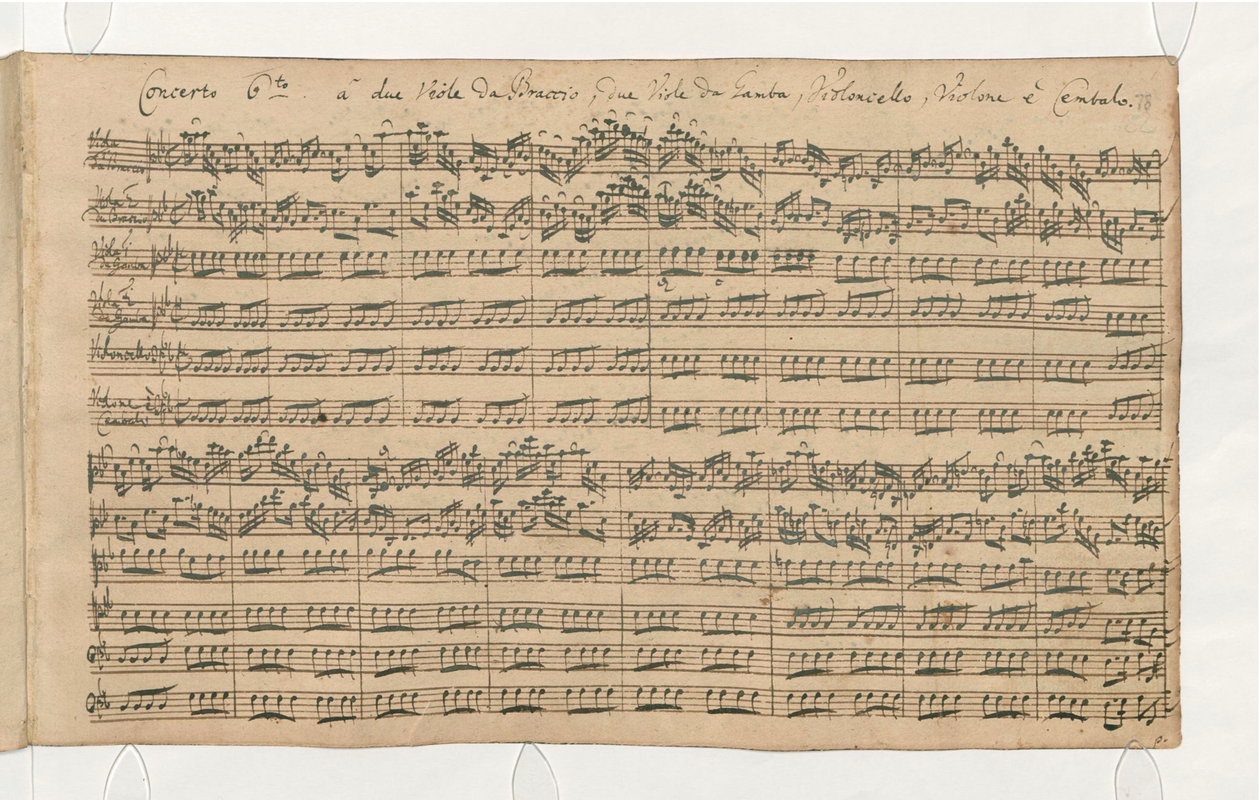 Concerto 6to. à due Viole da Braccio, due Viole da Gamba, Violoncello, Violone è Cembalo.
78
Viola 1
da Braccio
Viola 2
da Braccio
Viola 1
da Gamba
Viola 2
da Gamba
Violoncello
Violone è
Cembalo